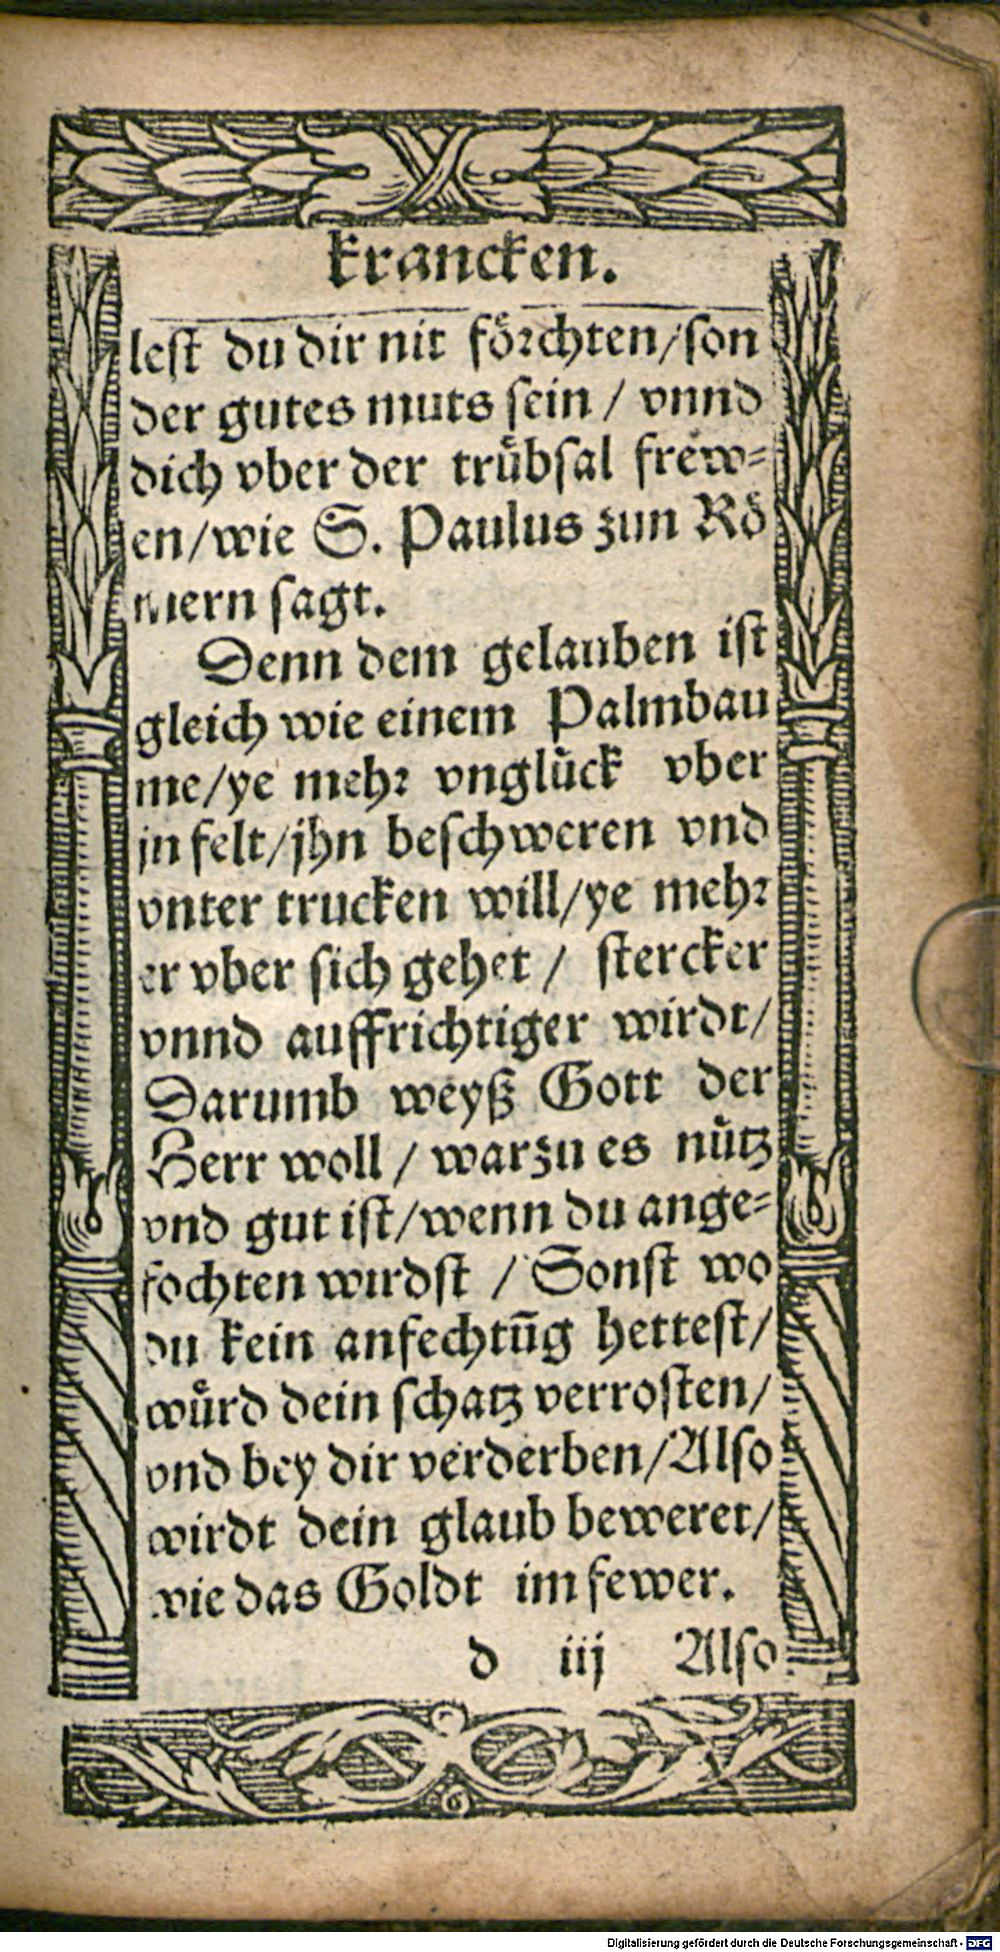 krancken.
lest du dir nit foͤrchten/son
der gutes muts sein / vnnd
dich vber der truͤbsal frew⸗
en/wie S. Paulus zun Roͤ
mern sagt.
Denn dem gelauben ist
gleich wie einem Palmbau
me/ye mehr vngluͤck vber
jn felt/jhn beschweren vnd
vnter trucken will/ye mehr
er vber sich gehet / stercker
vnnd auffrichtiger wirdt/
Darumb weyß Gott der
Herr woll / warzu es nuͤtz
vnd gut ist/wenn du ange⸗
fochten wirdst / Sonst wo
du kein anfechtūg hettest/
wuͤrd dein schatz verrosten/
vnd bey dir verderben/Also
wirdt dein glaub beweret/
wie das Goldt im fewer.
d iij Also
Digitalisierung gefördert durch die Deutsche Forschungsgemeinschaft - DFG